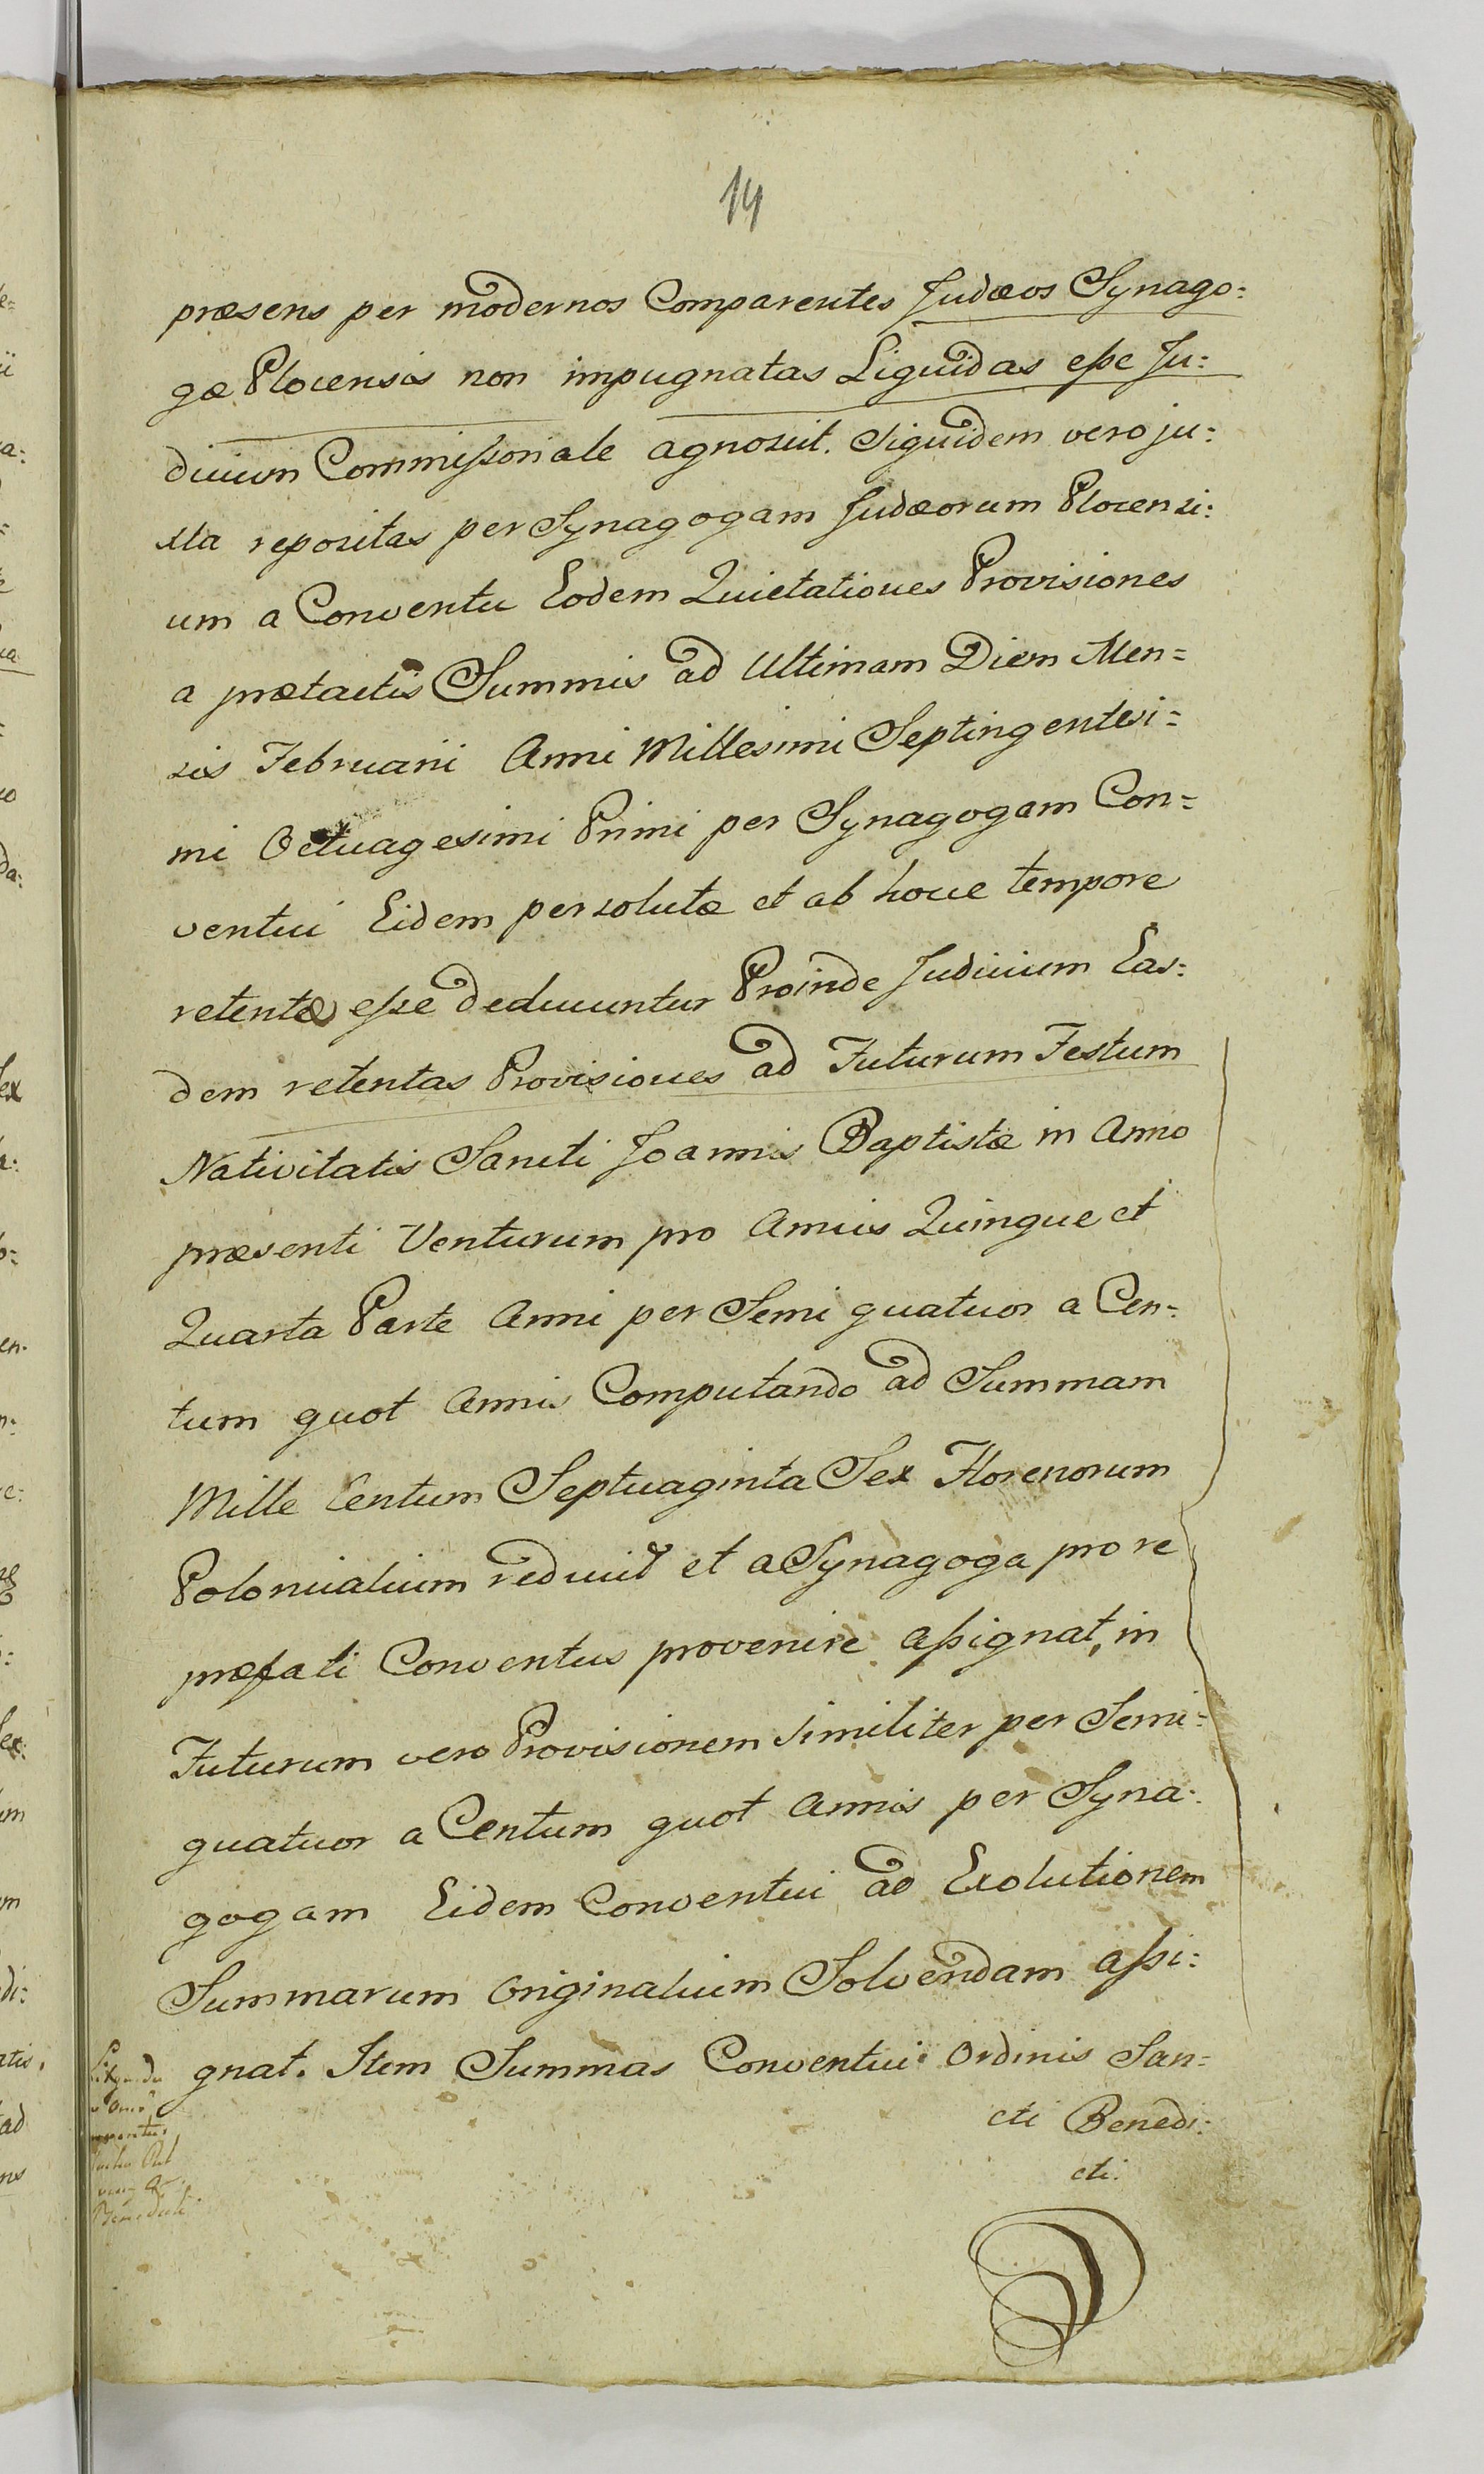 14
præsens per modernos Comparentes Judæos Synago=
gæ Plocensis non impugnatas Liquidas eſse Ju=
dicium Commiſsoriale agnoscit. Siquidem vero ju=
xta repositas per Synagogam Judæorum Plocensi=
um a Conventu Eodem Quietationes Provisiones
a prætactis Summis ad Ultimam Diem Men=
sis Februarii Anni Millesimi Septingentesi=
mi Octuagesimi Primi per Synagogam Con=
ventui Eidem persolutæ et ab hocce tempore
retentæ eſse deducuntur Proinde Judicium Eas=
dem retentas Provisiones ad Futurum Festum
Nativitatis Sancti Joannis Baptistæ in Anno
præsenti Venturum pro Annis Quinque et
Quarta Parte Anni per Semi quatuor a Cen=
tum quot Annis Computando ad Summam
Mille Centum Septuaginta Sex Florenorum
Polonicalium reducit et a Synagoga pro re
præfati Conventus provenire aſsignat, in
Futurum vero Provisionem similiter per Semi=
quatuor a Centum quot Annis per Syna=
gogam Eidem Conventui ad Exolutionem
Summarum originalium Solvendam aſsi=
gnat. Item Summas Conventui Ordinis San=
cti Benedi=
cti.
Benedicti